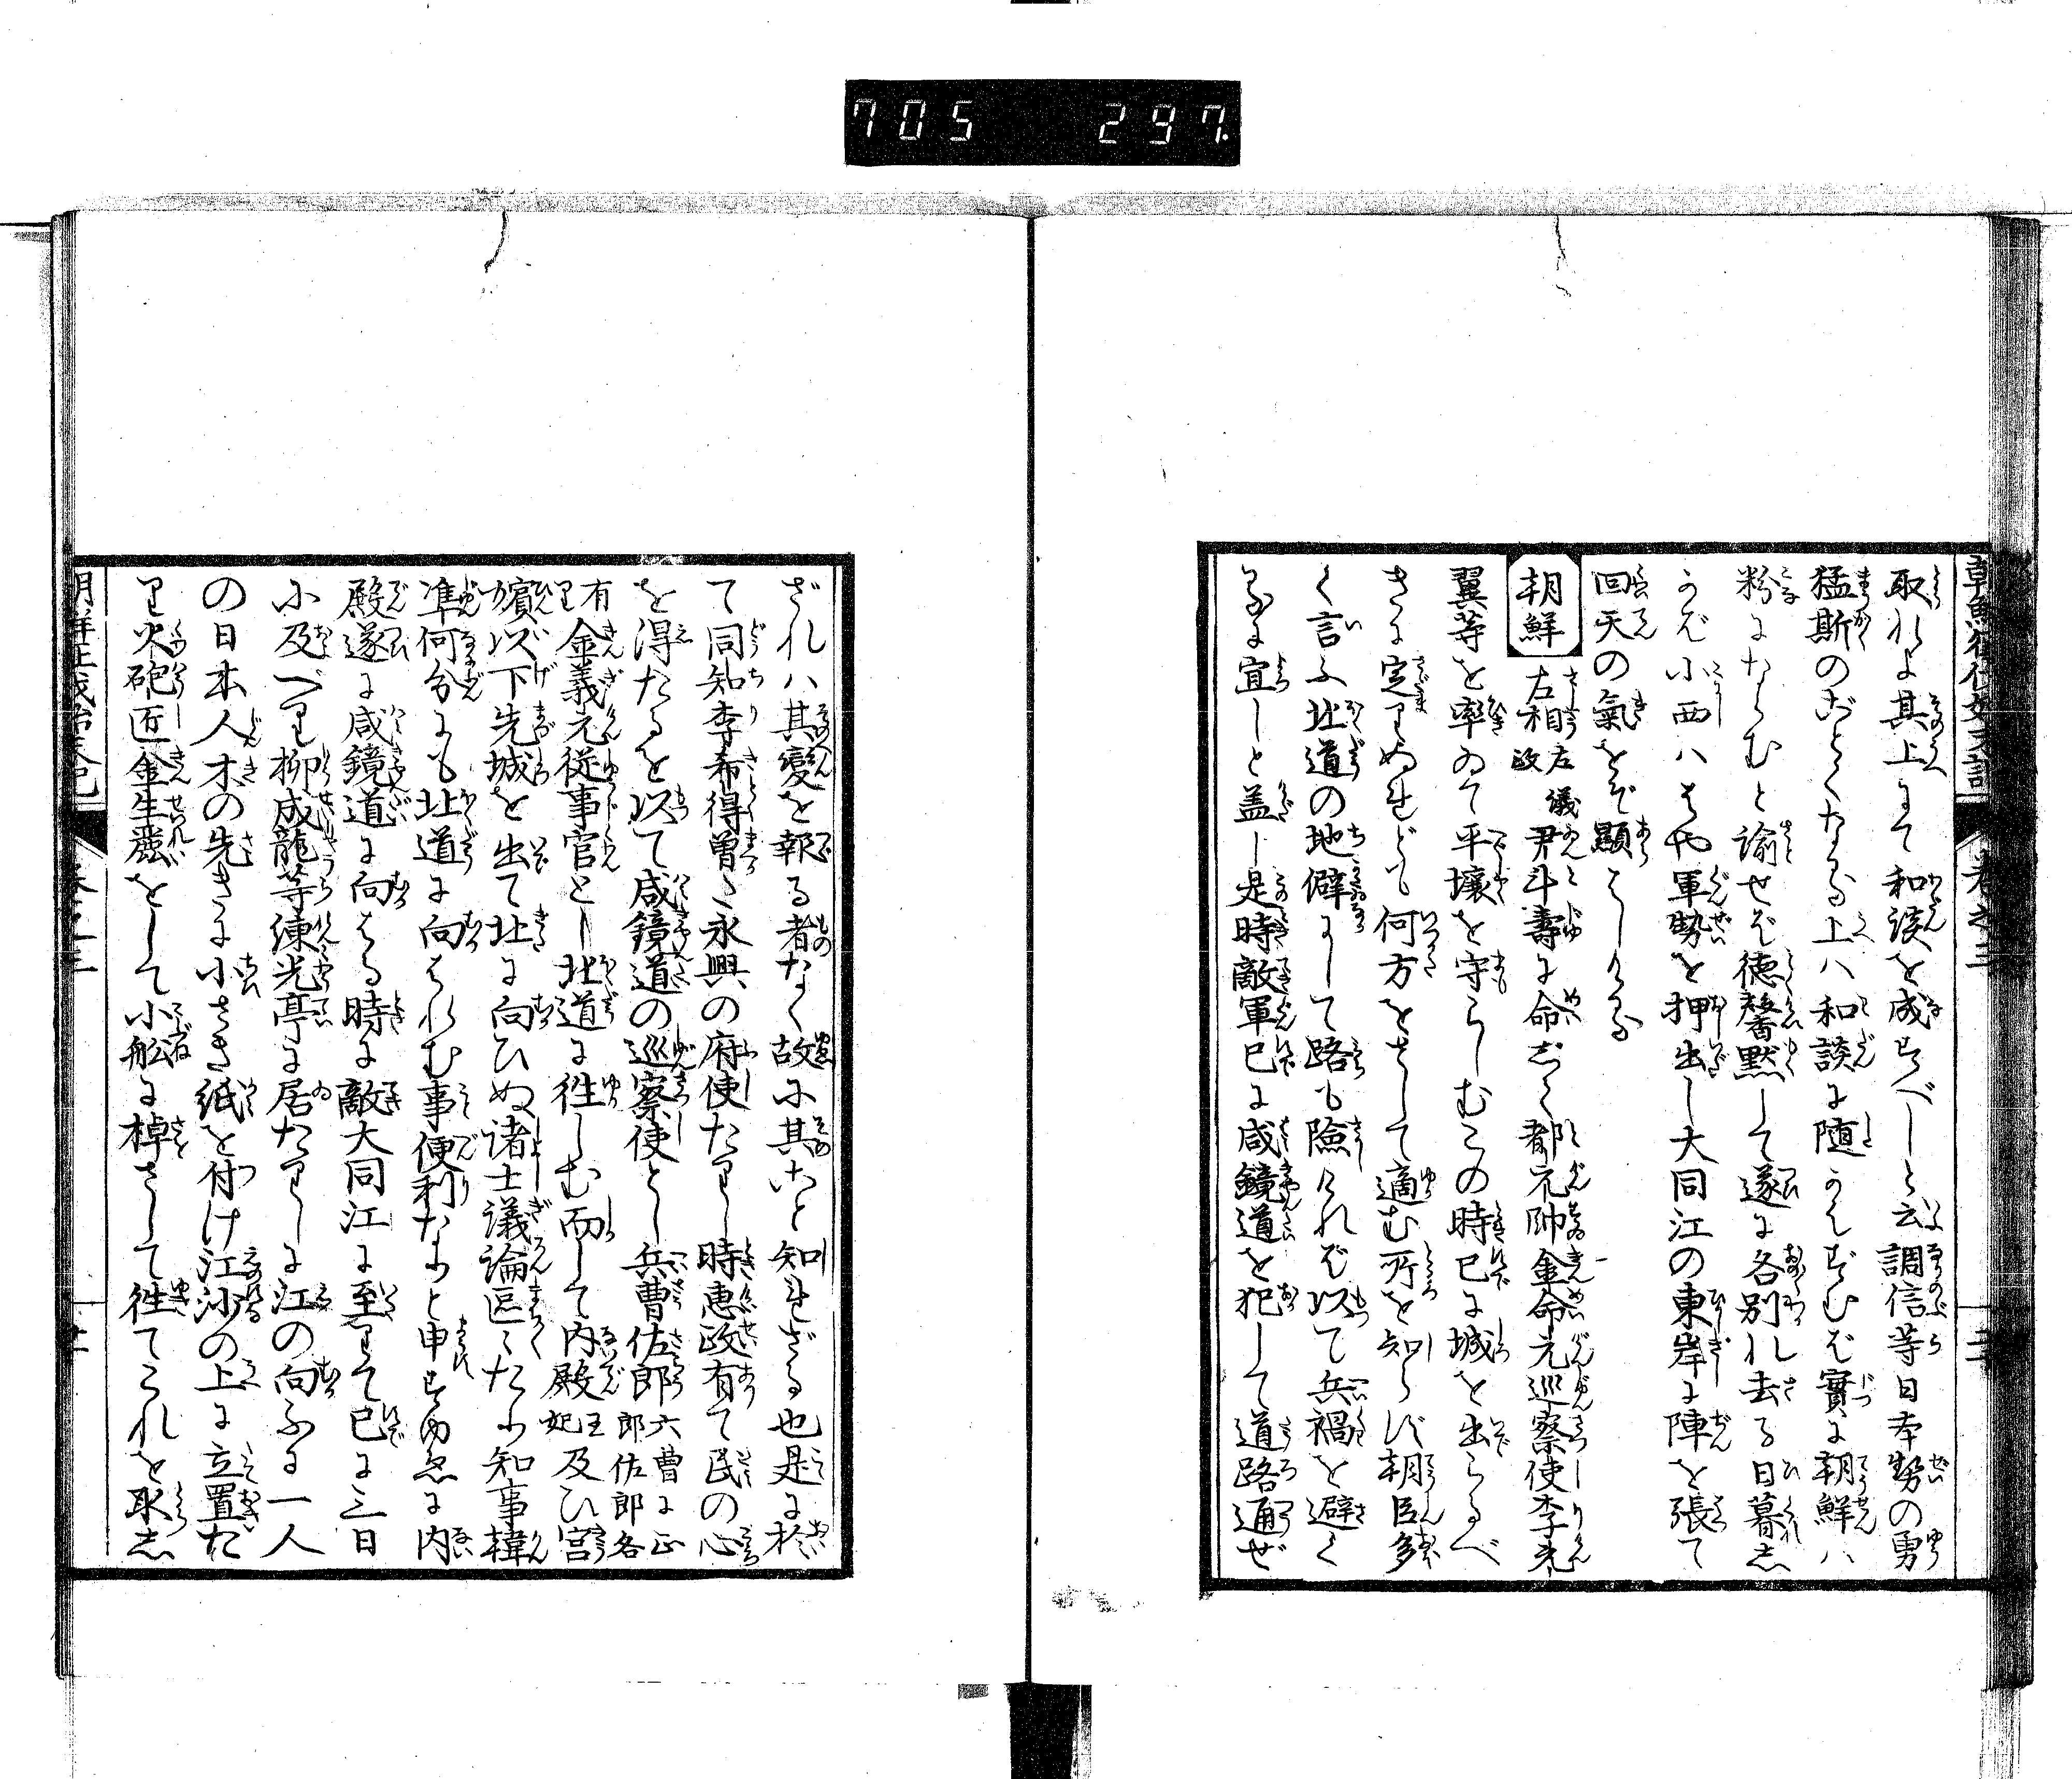 705 297
取れよ其上にて和談を成すべしと云調信等日本勢の勇
猛斯のごとくなる上ハ和談に随ハずむバ實に朝鮮ハ
粉になららむと諭せど徳馨黙して遂に各別れ去る日暮し
かバ小西ハはや軍勢を押出し大同江の東岸に陣を張て
回天の氣をぞ顯ハしける
朝鮮 左相 左議政 尹斗壽に命じて都元帥金命元巡察使李元
翼等を率ゐて平壌を守らしむこの時已に城を出らるべ
きに定りぬれども何方をさして適む所を知らず朝臣多
く言ふ北道の地僻にして路も險ければ以て兵禍を避く
るに宜しと蓋し是時敵軍已に咸鏡道を犯して道路通ぜ
ざれハ其變を報る者なく故に其こと知れざる也是に於
て同知李希得曽て永興の府使たりし時惠政有て民の心
を得たるを以て咸鏡道の巡察使とし兵曹佐郎 六曹に正郎佐郎各
有り 金義元従事官とし北道に徃しむ而して内殿 王妃 及ひ宮
嬪以下先城を出て北に向ひぬ諸士議論区々たり知事韓
準何分にも北道に向はれむ事便利なりと申すゆゑに内
殿遂に咸鏡道に向はる時に敵大同江に至りて已に三日
に及べり柳成龍等練光亭に居たりしに江の向ふに一人
の日本人木の先きに小さき紙を付け江沙の上に立置た
り火砲匠金生麗をして小舩に棹さして徃てこれを取し